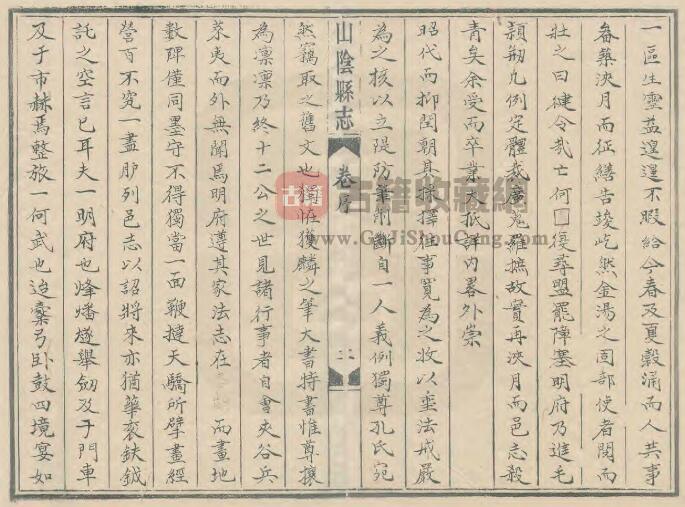 一區生靈益遑遑不暇給今春及夏穀涌而人共事
畚藝浹月而征繕告竣屹然金湯之固部使者閱而
壯之曰健令哉亡何□復尋盟罷障塞明府乃進毛
穎剏凡例定體裁廣蒐羅摭故實再浹月而邑志殺
青矣余受而卒業大抵詳內畧外崇
昭代而抑閏朝其採擇往事寬為之收以垂法戒嚴
為之核以立隄防筆削斷自一人義例獨尊孔氏宛
山陰縣志 卷序
古籍收藏網
www.GuJiShouCang.com
然竊取之舊文也獨恠獲麟之筆大書特書惟尊攘
為凜凜乃終十二公之世見諸行事者自會夾谷兵
萊夷而外無聞焉明府遵其家法志在 而畫地
數碑僅同墨守不得獨當一面鞭撻天驕所擘畫經
營百不究一盡臚列邑志以詔將來亦猶華袞鈇鉞
託之空言已耳夫一明府也烽燧舉劒及于門車
及于市赫焉整旅一何武也迨櫜弓臥鼓四境宴如